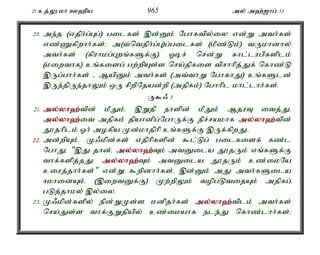 21 உத்லு மா ஊஹிய 965 அல் அஹ்ஜாப் 33
20. அந்த (எதிர்ப்புப்) படைகள் இன்னும் போகவில்லை என்று அவர்கள்
எண்ணுகிறார்கள்: அ(வ்வெதிர்ப்பு)ப்படைகள் (மீண்டும்) வருமானால்
அவர்கள் (கிராமப்புறங்களுக்கு) ஓடிச் சென்று காட்டரபிகளிடம்
(மறைவாக) உங்களைப் பற்றியுள்ள செய்திகளை விசாரித்துக் கொண்டு
இருப்பார்கள் - ஆயினும் அவர்கள் (அவ்வாறு போகாது) உங்களுடன்
இருந்திருந்தாலும் ஒரு சிறிதேயன்றி (அதிகம்) போரிட மாட்டார்கள்.
ருகூஃ 3
21. அல்லாஹ்வின் மீதும், இறுதி நாளின் மீதும் ஆதரவு வைத்து,
அல்லாஹ்வை அதிகம் தியானிப்போருக்கு நிச்சயமாக அல்லாஹ்வின்
தூதரிடம் ஓர் அழகிய முன்மாதிரி உங்களுக்கு இருக்கிறது.
22. அன்றியும், முஃமின்கள் எதிரிகளின் கூட்டுப் படைகளைக் கண்ட
போது, "இது தான், அல்லாஹ்வும் அவனுடைய தூதரும் எங்களுக்கு
வாக்களித்தது; அல்லாஹ்வும் அவனுடைய தூதரும் உண்மையே
உரைத்தார்கள்" என்று கூறினார்கள். இன்னும் அது அவர்களுடைய
ஈமானையும், (இறைவனுக்கு) முற்றிலும் வழிபடுவதையும் அதிகப்
படுத்தாமல் இல்லை.
23. முஃமின்களில் நின்றுமுள்ள மனிதர்கள் அல்லாஹ்விடம் அவர்கள்
செய்துள்ள வாக்குறுதியில் உண்மையாக நடந்து கொண்டார்கள்;